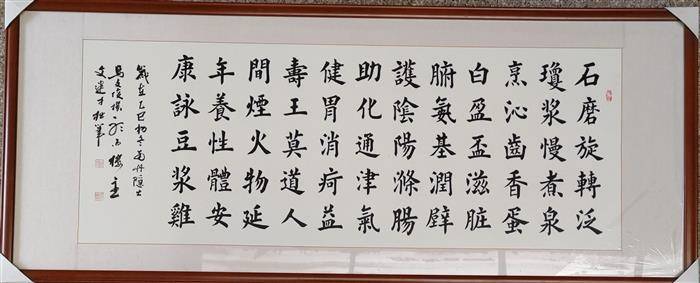 石磨旋轉泛
瓊漿慢煮泉
烹沁齒香蛋
白盈盃滋脏
腑氨基潤辟
護陰陽滌腸
助化通津氣
健胃消疴益
壽王莫道人
間煙火物延
年養性體安
康詠豆漿雞
歲在乙巳初冬